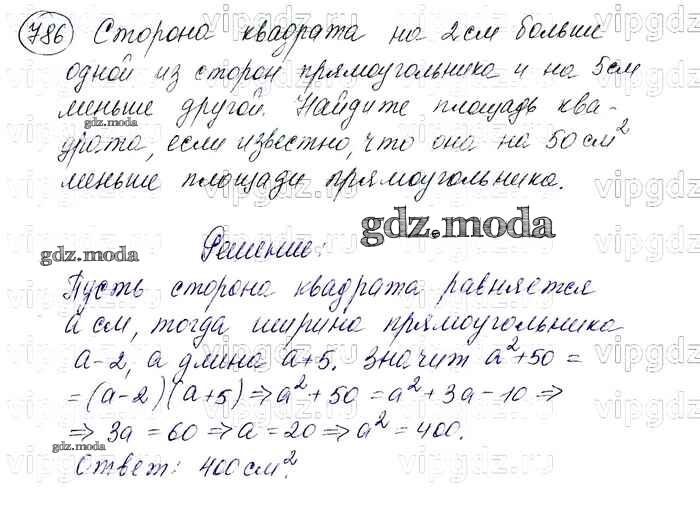 786 Сторона квадрата на 2см больше
одной из сторон прямоугольника и на 5см
меньше другой. Найдите площадь ква-
gdz.moda
драта, если известно, что она на 50 см²
меньше площади прямоугольника.
gdz.moda
gdz.moda
Решение:
Пусть сторона квадрата равняется
a см, тогда ширина прямоугольника
a-2, а длина a+5. Значит a²+50 =
=(a-2)(a+5)⇒a²+50=a²+3a-10⇒
⇒ 3a=60⇒a=20⇒a²=400.
gdz.moda
Ответ: 400см².
vipgdz.ru